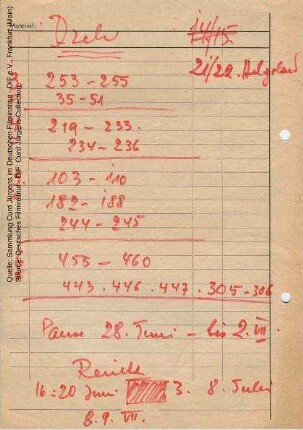 Material:
Dreh
14/15.
21/22. Helgoland
253 - 255
35 - 51
219 - 233.
234 - 236
103 - 110
182 - 188
244 - 245
455 - 460
443 . 446 . 447 . 305 - 306
Pause 28. Juni - bis 2. VII.
16 = 20 Juni 3. 8. Juli
8. 9. VII.
Quelle: Sammlung Curd Jürgens im Deutschen Filminstitut - DIF e.V., Frankfurt (Main)
Source: Deutsches Filminstitut - DIF Curd Jürgens Collection